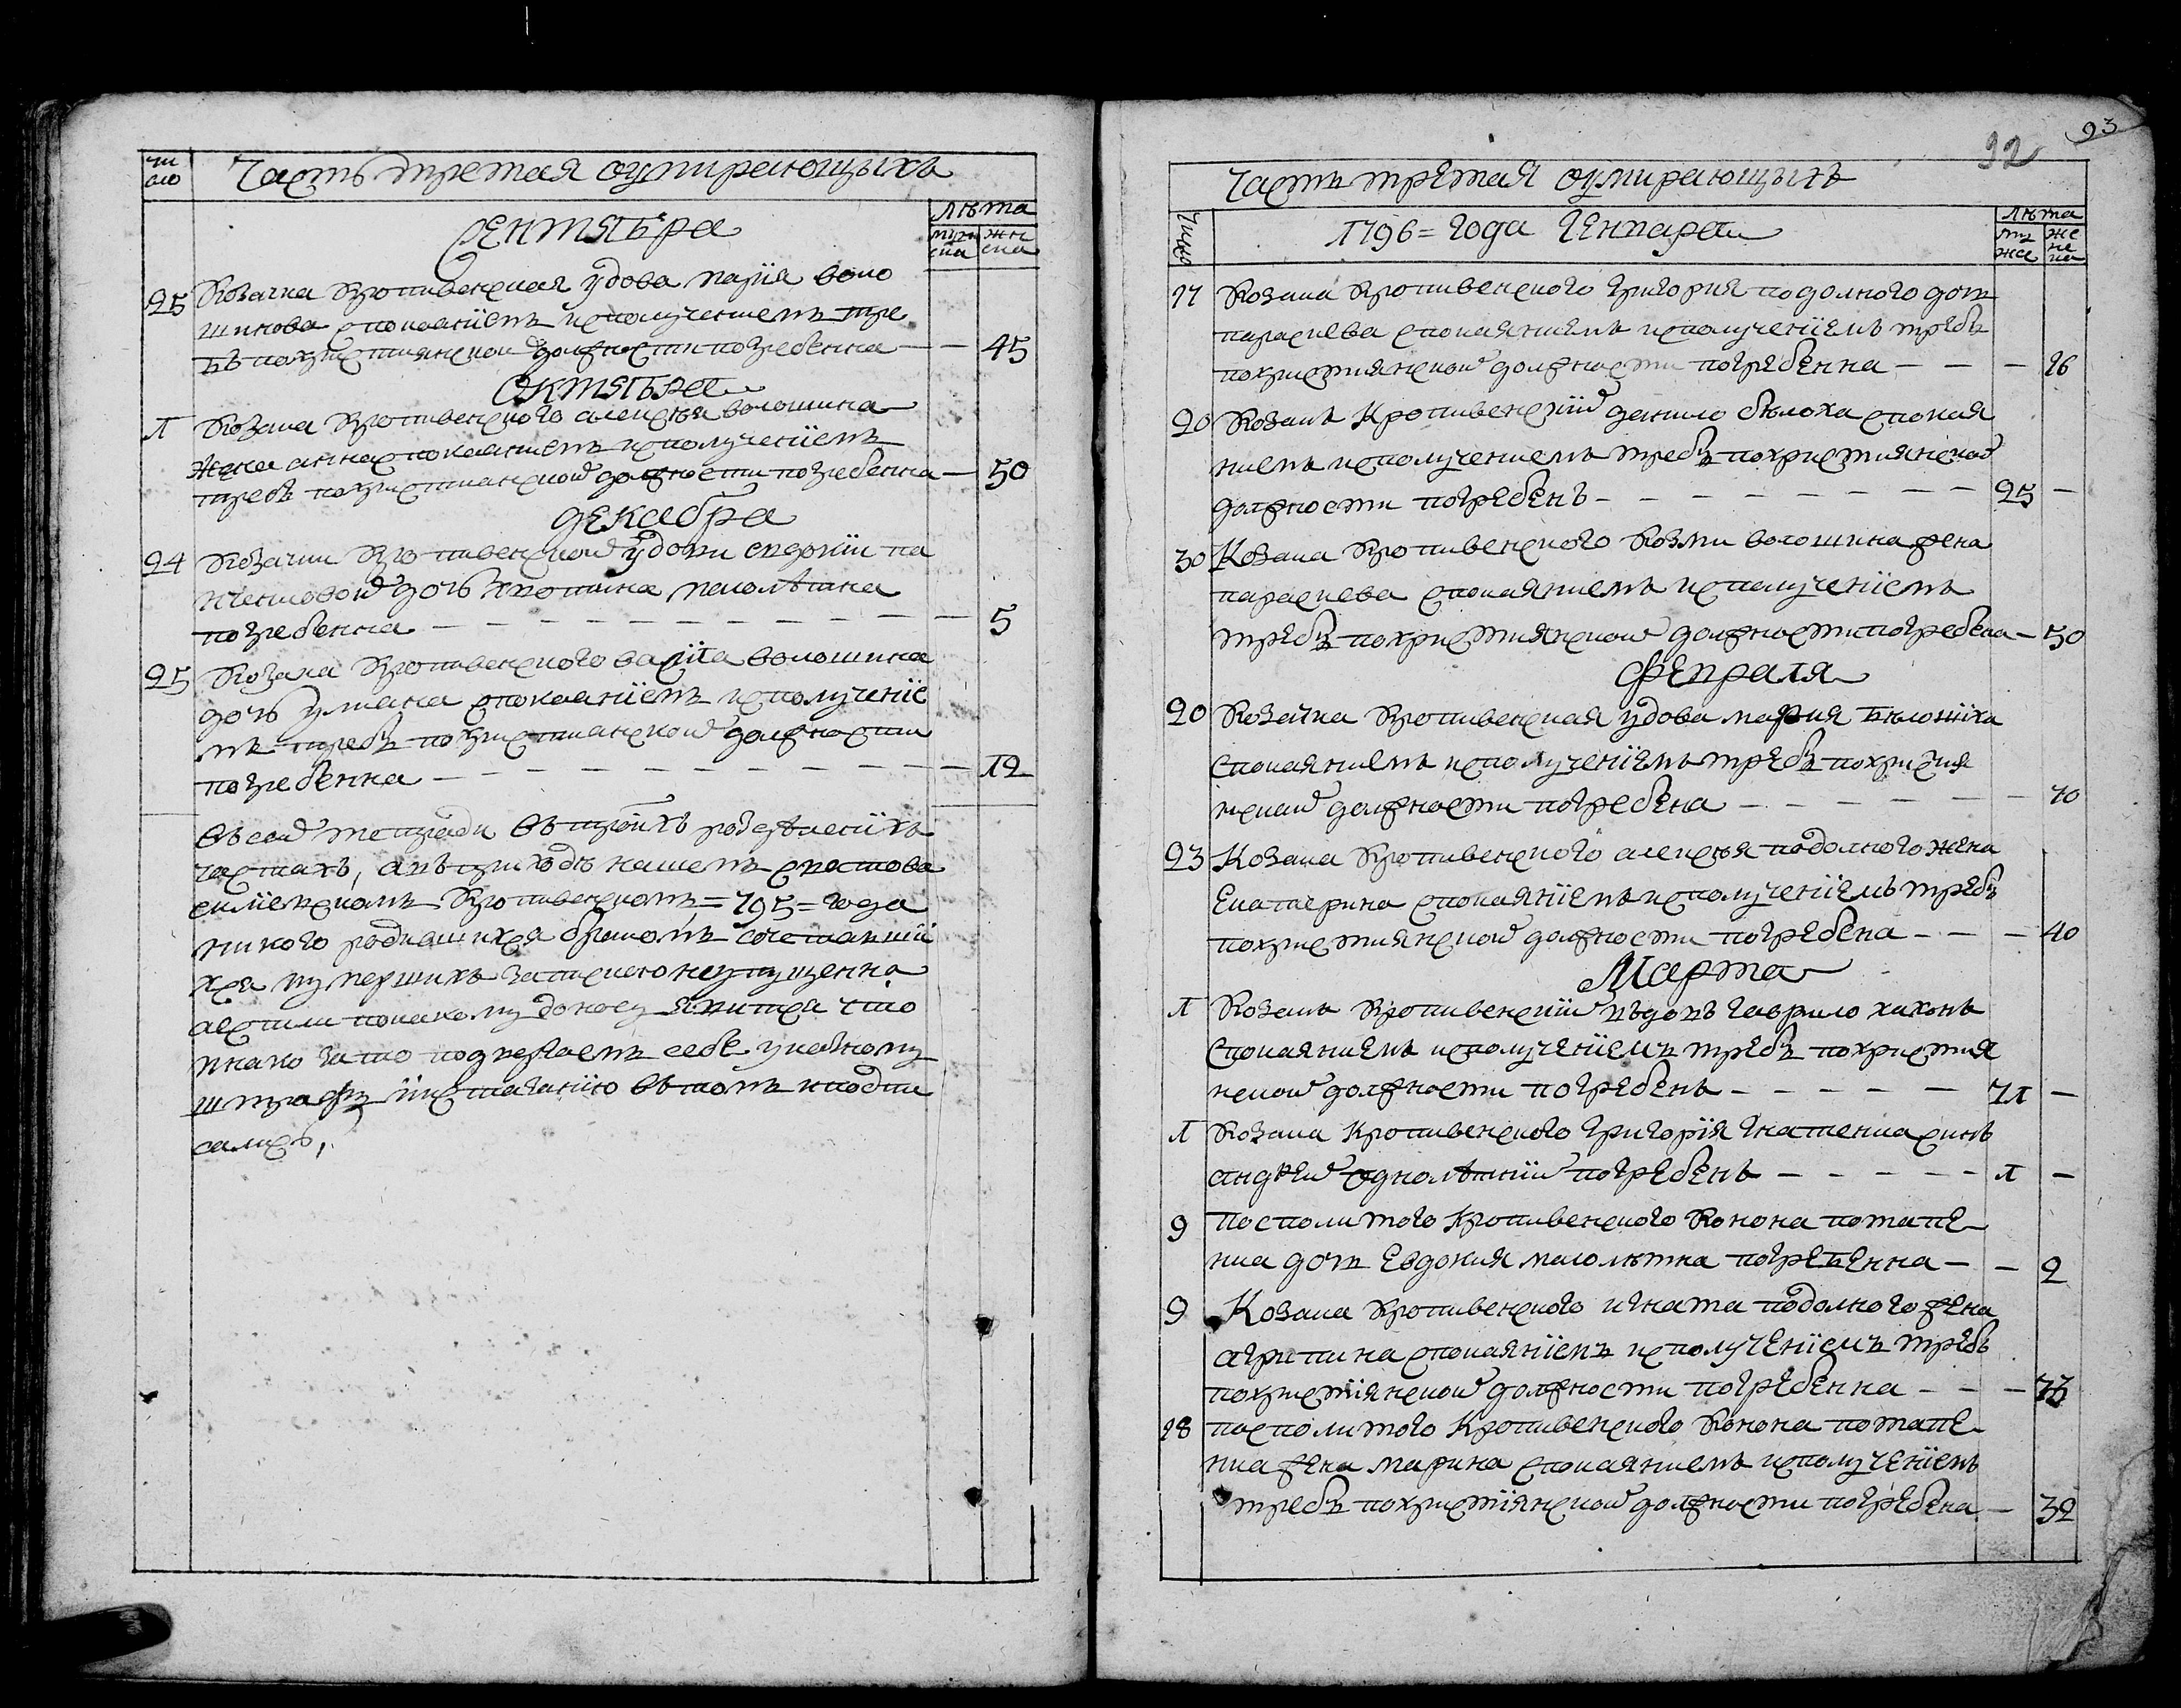 чи
сло
Часть третая оумирающыхъ
Сентябра
лѣта
мужеска
женска
25 Козачка Кропивенская удова марія воло
шинова спокаяніемъ исполученіемъ тре
бъ похристиянской должности погребенна — — 45
Октября
1 Козака Кропивенского алексѣя волошина
жена анна спокаяніемъ исполученіемъ
требъ похристианской должности погребенна — 50
декабра
24 Козачки Кропивенской удови
дочь малолѣтна
погребенна — 5
25 Козака Кропивенского волошина
дочь уляна спокаяніемъ исполученіе
мъ требъ похристианской должности
погребенна — 12
Въсей тетради въ троихъ
частахъ, авъприходѣ нашемъ
Кропивенскомъ = 795 = года
никого родившихся бракомъ сочетавши
хся иумершихъ неупущенна
ачто
инако зато подвергаемъ себе
штрафу въ томъ иподпи
сались,
92
93
Часть третая оумирающыхъ
Число
1796 = года Генваря
лѣта
му
жеска
же
не
ка
17 Козака Кропивенского григория подолного дочъ
параскева спокаяниемъ исполученіемъ требъ
похристиянской должности погребенна — — — 26
20 Козакъ Кропивенскій данило бѣлоха спокая
ниемъ исполучениемъ требъ похристиянской
должности погребенъ — 25 —
30 Козака Кропивенского Козми волошина жена
параскева спокаяниемъ исполученіемъ
требъ похристиянской должности погребена — 50
февраля
20 Козачка Кропивенская удова мария бѣлошиха
спокаяниемъ исполученіемъ требъ похристия
нской должности погребена — 70
23 Козака Кропивенского алексѣя подолного жена
Екатерина спокаяніемъ исполученіемъ требъ
похристиянской должности погребена — — — 40
Марта
1 Козакъ Кропивенскій вдовъ гаврило хахонъ
спокаяниемъ исполученіемъ требъ похристия
нской должности погребенъ — 71 —
1 Козака Кропивенского григорія гнатенка синъ
андрей однолѣтній погребенъ — 1 —
9 посполитого Кропивенского Конона потапе
нка дочъ Евдокия малолѣтна погребенна — — 2
9 Козака Кропивенского игната подолного жена
агрипина спокаяніемъ исполученіемъ требъ
похристіянской должности погребенна — — — 73
28 посполитого Кропивенского Конона потапе
нка жена марина спокаяниемъ исполученіемъ
требъ похристіянской должности погребена — 32